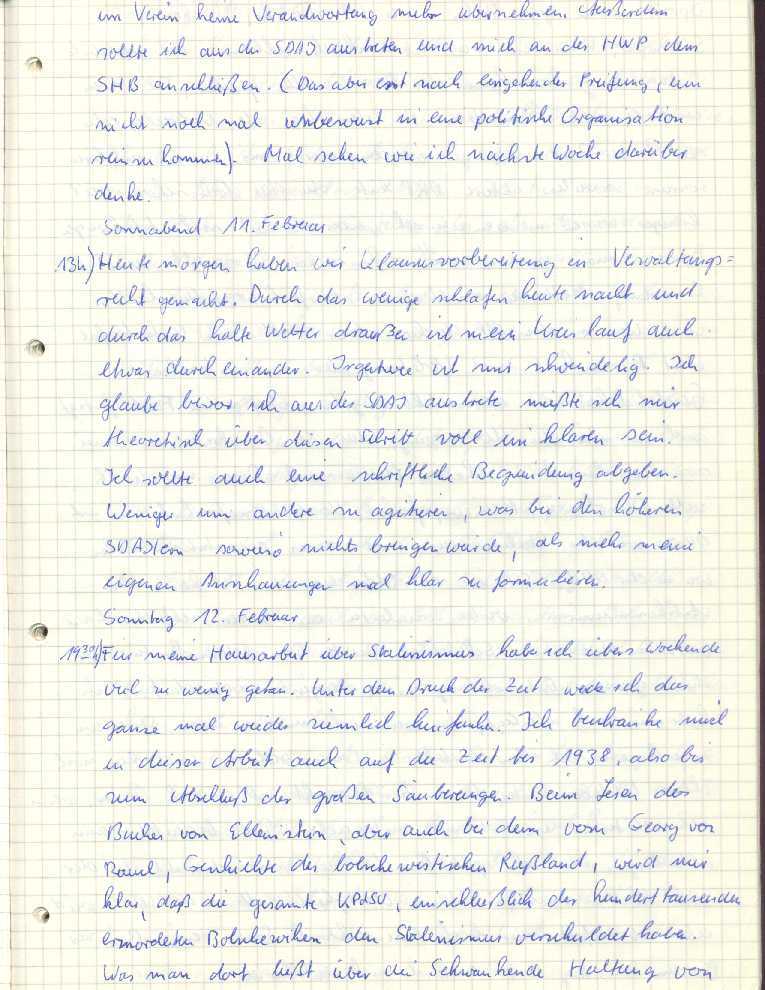 im Verein keine Verandwortung mehr übernehmen. Außerdem
sollte ich aus der SDAJ austreten und mich an der HWP dem
SHB anschließen. (Das aber erst nach eingehender Prüfung, um
nicht noch mal unbewusst in eine politische Organisation
reinzukommen). Mal sehen wie ich nächste Woche darüber
denke.
Sonnabend 11. Februar
13h) Heute morgen haben wir Klausurvorbereitung in Verwaltungs=
recht gemacht. Durch das wenige schlafen heute nacht und
durch das kalte Wetter draußen ist mein Kreislauf auch
etwas durcheinander. Irgendwie ist mir schwindelig. Ich
glaube bevor ich aus der SDAJ austrete müßte ich mir
theoretisch über diesen Schritt voll im klaren sein.
Ich sollte auch eine schriftliche Begründung abgeben.
Weniger um andere zu agitieren, was bei den höheren
SDAJlern sowieso nichts bringen würde, als mehr meine
eigenen Anschauungen mal klar zu formulieren.
Sonntag 12. Februar
19³⁰h) Für meine Hausarbeit über Stalinismus habe ich übers Wochende
viel zu wenig getan. Unter dem Druck der Zeit werde ich das
ganze mal wieder ziemlich hinfuschen. Ich beschränke mich
in dieser Arbeit auch auf die Zeit bis 1938, also bis
zum Abschluß der großen Säuberungen. Beim Lesen des
Buches von Ellenstein, aber auch bei dem vom Georg von
Rauch, Geschichte des bolschewistischen Rußland, wird mir
klar, daß die gesamte KPdSU, einschließlich der hunderttausenden
ermordeten Bolschewiken den Stalinismus verschuldet haben.
Was man dort ließt über die Schwankende Haltung von